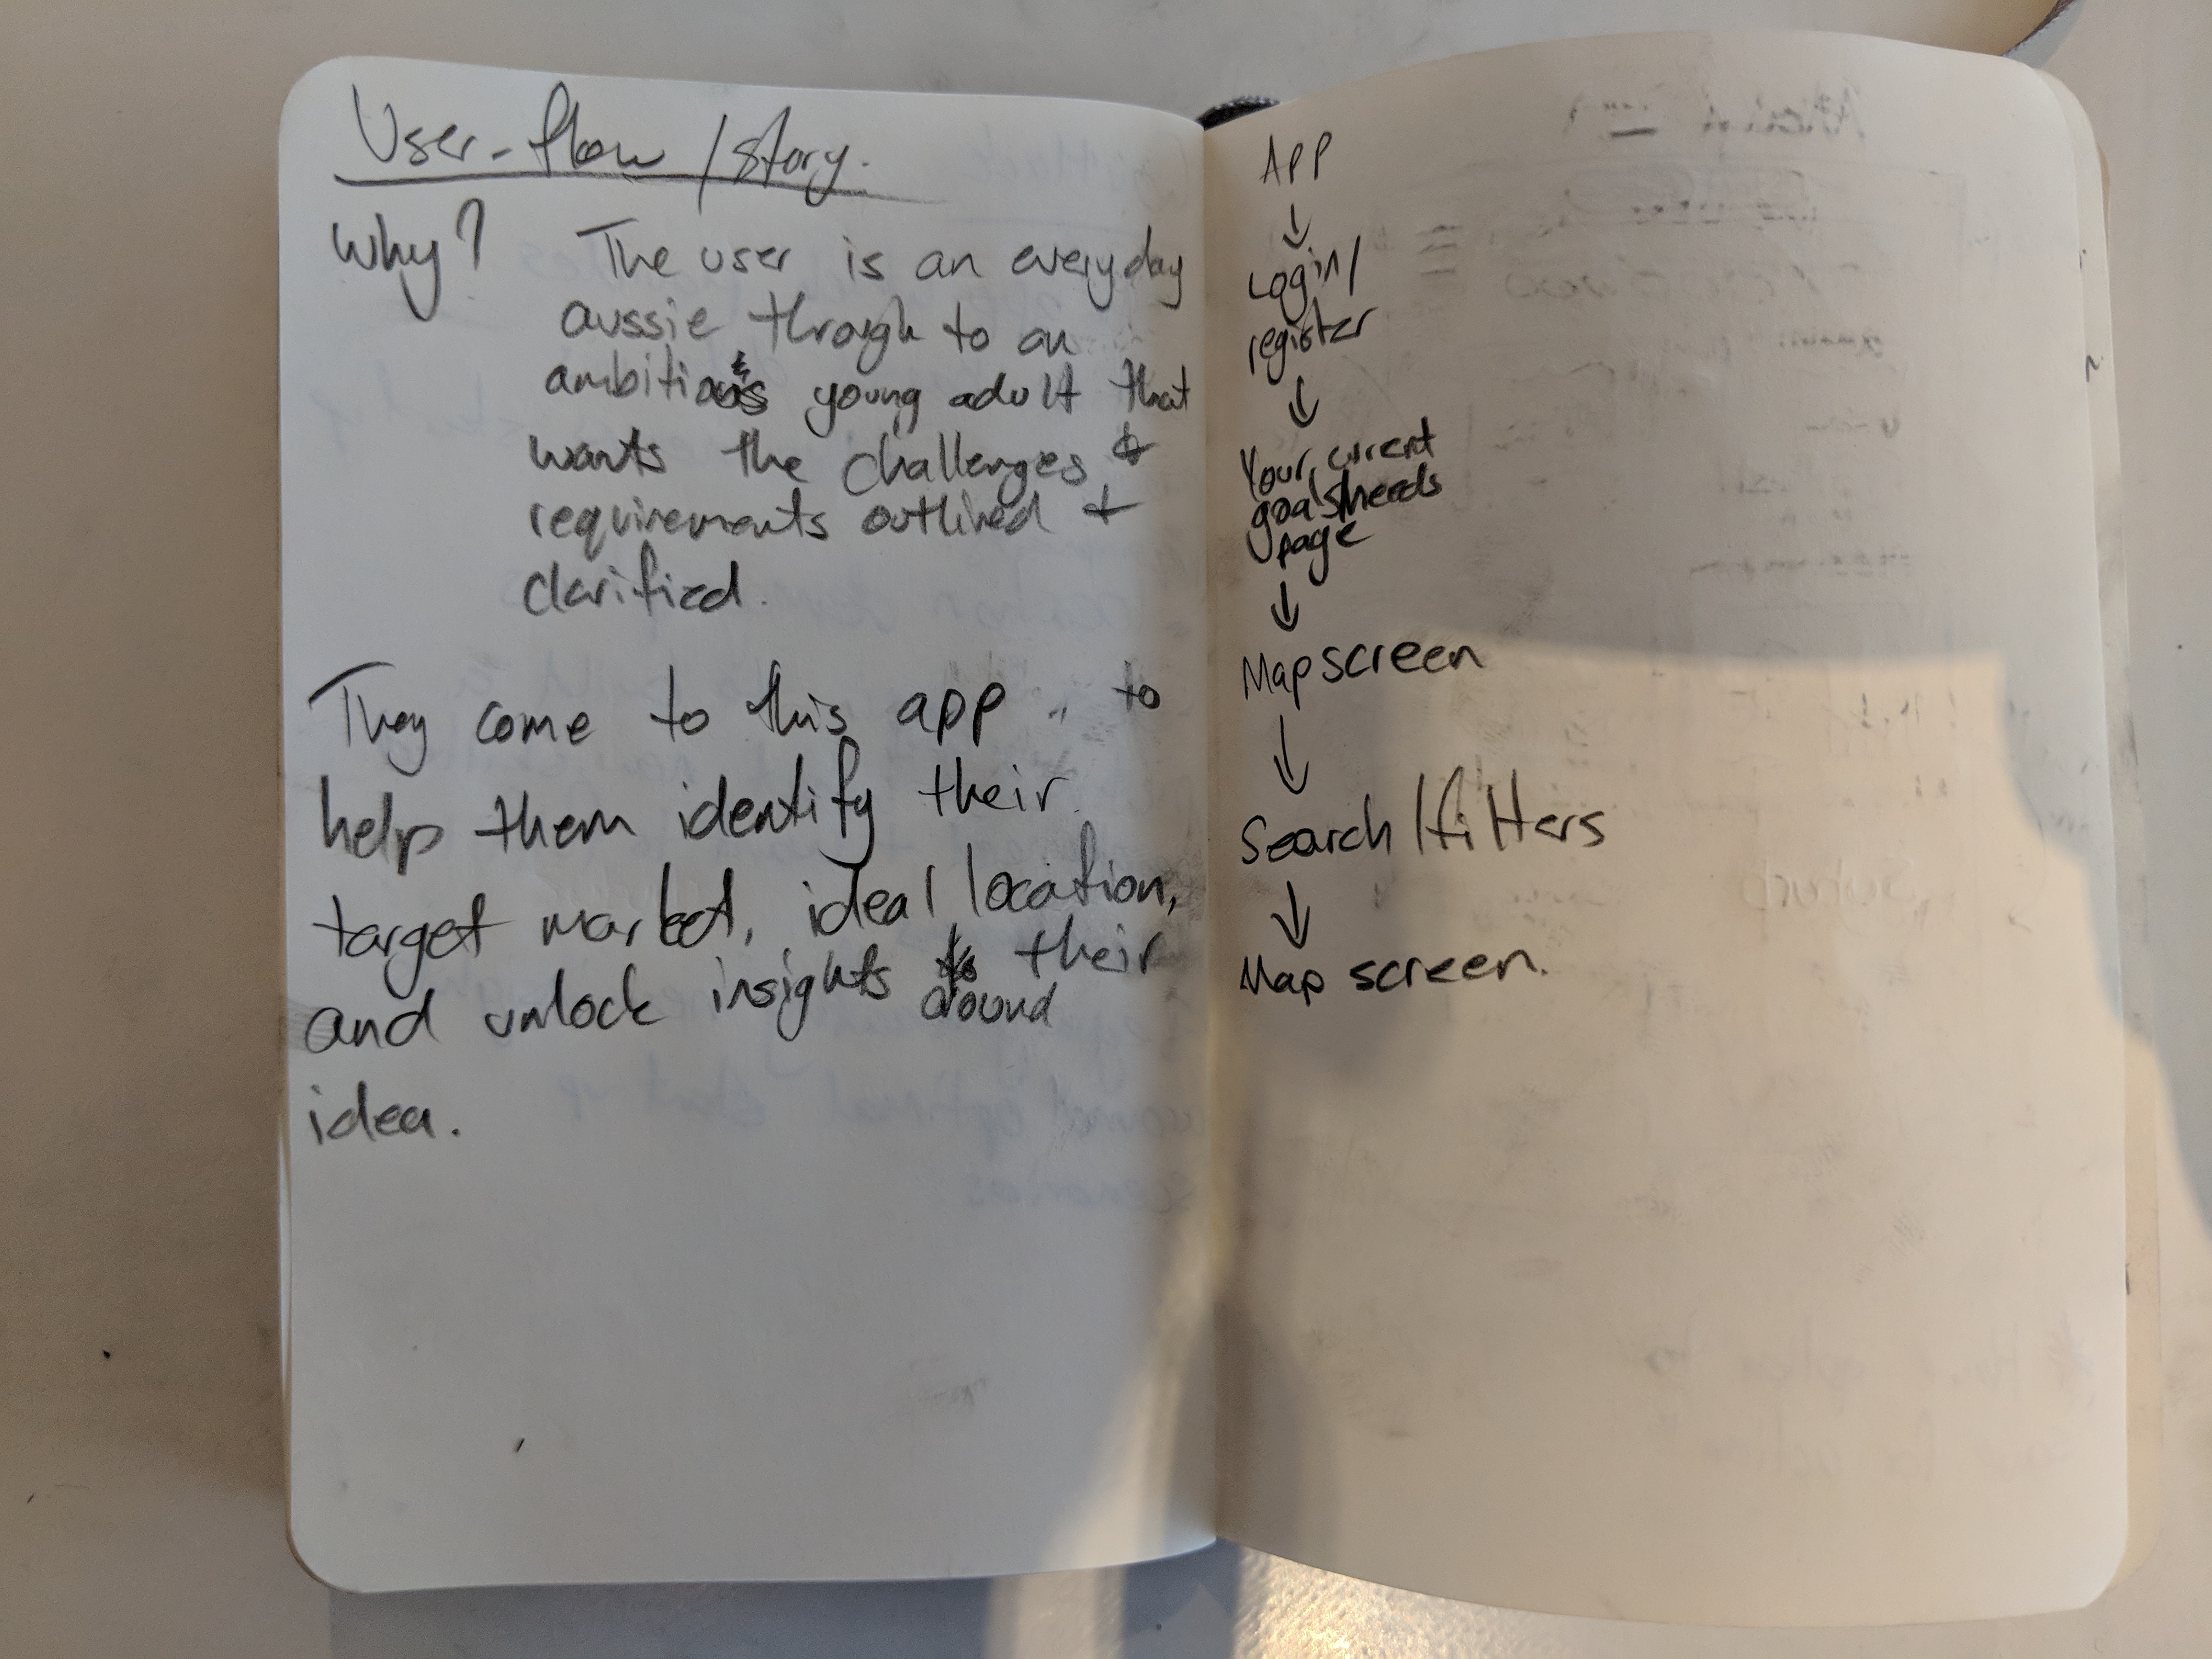 User-flow / story.
Why? The user is an everyday
aussie through to an
ambitious young adult that
wants the challenges &
requirements outlined +
clarified.
They come to this app to
help them identify their
target market, ideal location,
and unlock insights around their
idea.
App
↓
Login/
register
↓
Your current
goals/needs
page
↓
Map screen
↓
Search/filters
↓
Map screen.